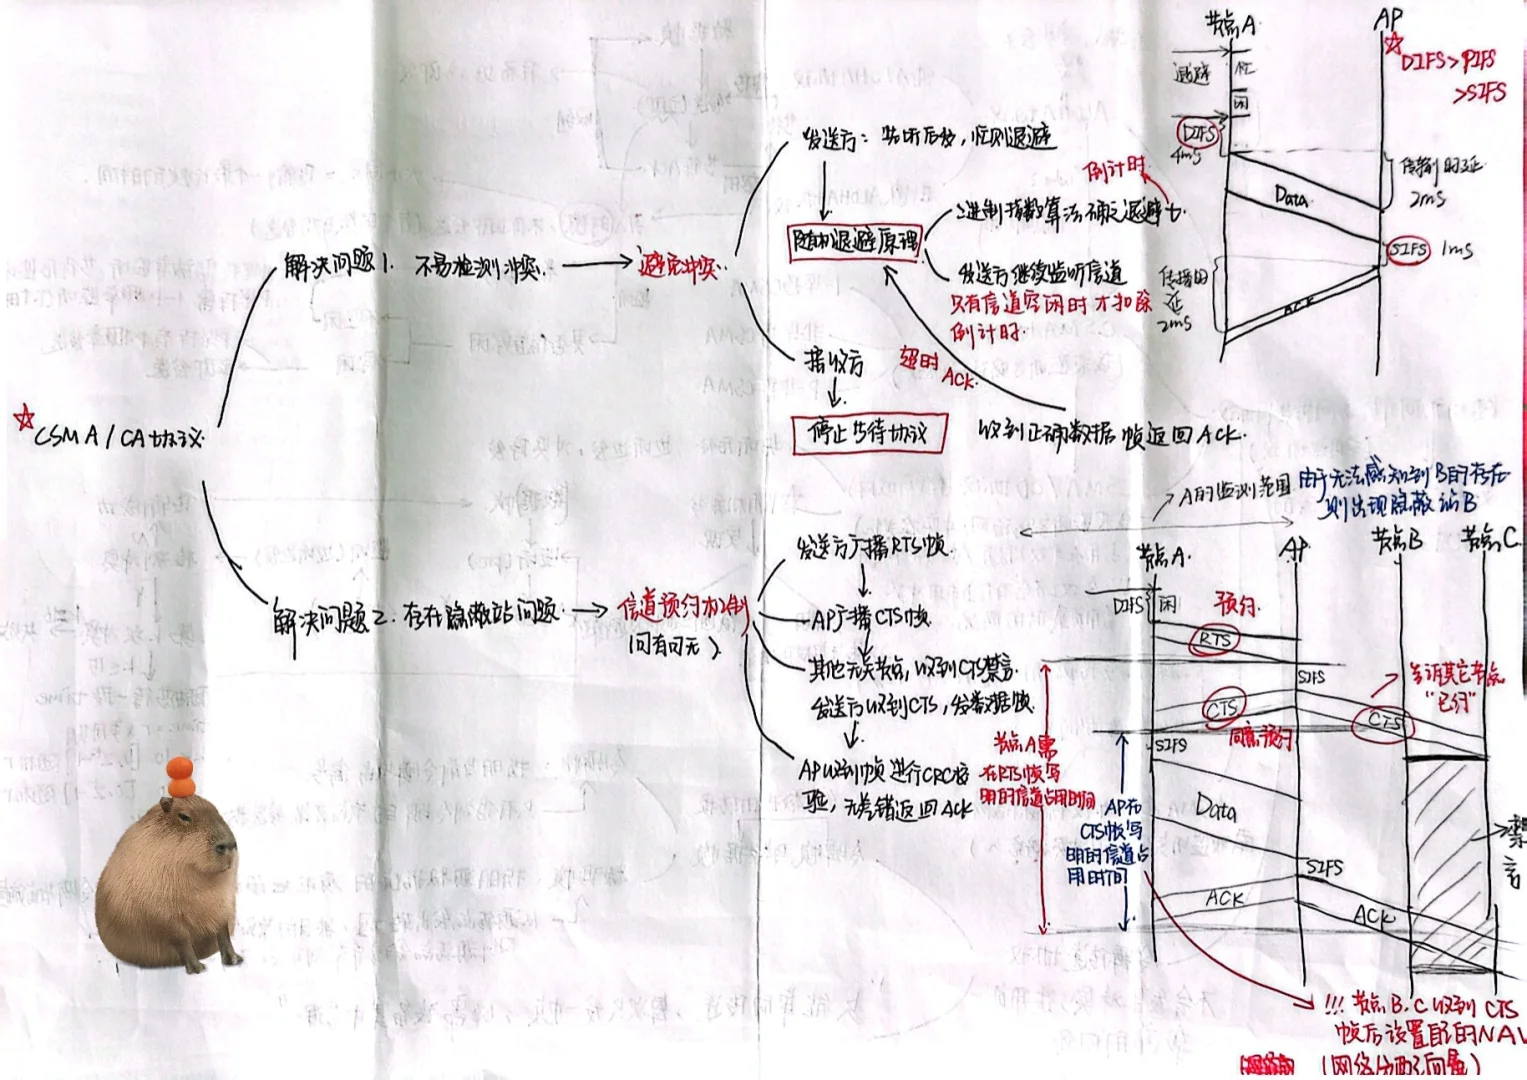 CSMA/CA协议
解决问题1. 不易检测冲突.
避免冲突.
发送方：先听后发，忙则退避
随机退避原理
二进制指数算法确定退避
倒计时
发送方继续监听信道
只有信道空闲时才扣除
倒计时.
接收方
停止等待协议
收到正确数据帧返回ACK.
超时
ACK.
节点A.
AP
DIFS>PIFS
>SIFS
退避
忙
闲
DIFS
4ms
Data
传输时延
2ms
SIFS 1ms
传播时
延
2ms
ACK
解决问题2. 存在隐蔽站问题.
信道预约机制
(可有可无)
发送方广播RTS帧.
AP广播CTS帧.
其他无关节点,收到CTS禁言.
发送方收到CTS,发数据帧.
AP收到帧进行CRC校
验,无差错返回ACK
A的监测范围
由于无法感知到B的存在
则出现隐蔽站B
节点A.
AP.
节点B
节点C.
DIFS
闲
预约.
RTS
SIFS
CTS
同意预约
CTS
告诉其它节点
"已约"
SIFS
节点A需
在RTS帧写
明的信道占用时间
AP在
CTS帧写
明的信道占
用时间
Data
SIFS
ACK
ACK
禁
言
!!! 节点B.C收到CTS
帧后设置自己的NAV
(网络分配向量)